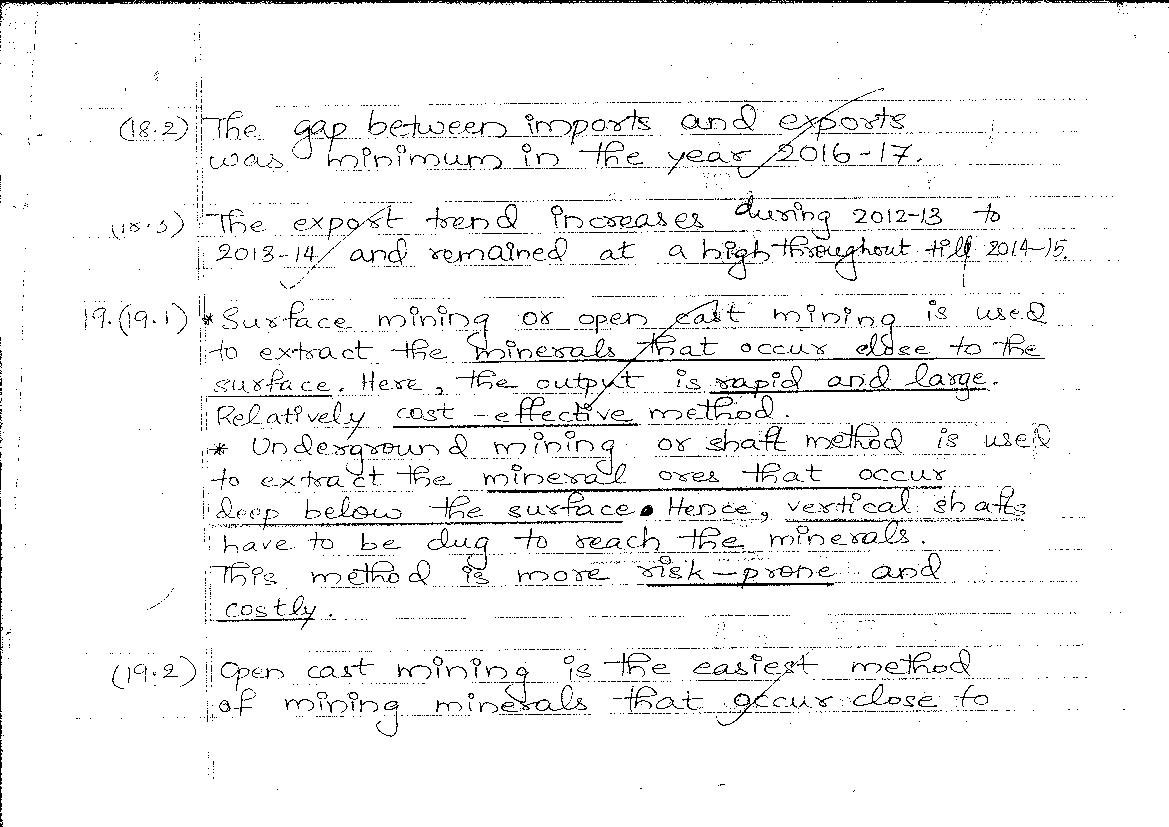 (18.2) The gap between imports and exports
was minimum in the year 2016-17.
(18.3) The export trend increases during 2012-13 to
2013-14 and remained at a high throughout till 2014-15.
19.(19.1) * Surface mining or open cast mining is used
to extract the minerals that occur close to the
surface. Here, the output is rapid and large.
Relatively cost-effective method.
* Underground mining or shaft method is used
to extract the mineral ores that occur
deep below the surface. Hence, vertical shafts
have to be dug to reach the minerals.
This method is more risk-prone and
costly.
(19.2) Open cast mining is the easiest method
of mining minerals that occur close to